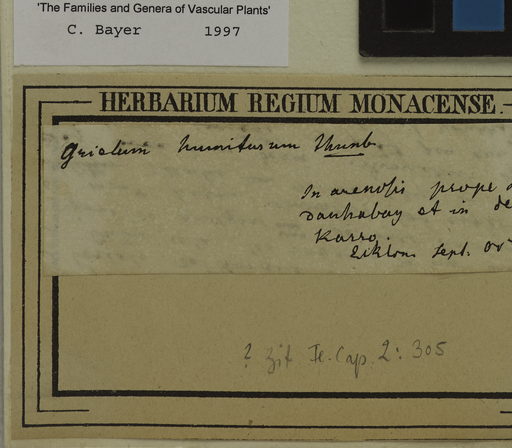 'The Families and Genera of Vascular Plants'
C. Bayer 1997
HERBARIUM REGIUM MONACENSE.
Grielum humifusum Thunb.
In arenosis prope
et in
Karro.
Ecklon. Sept.
? Fl. Cap. 2: 305